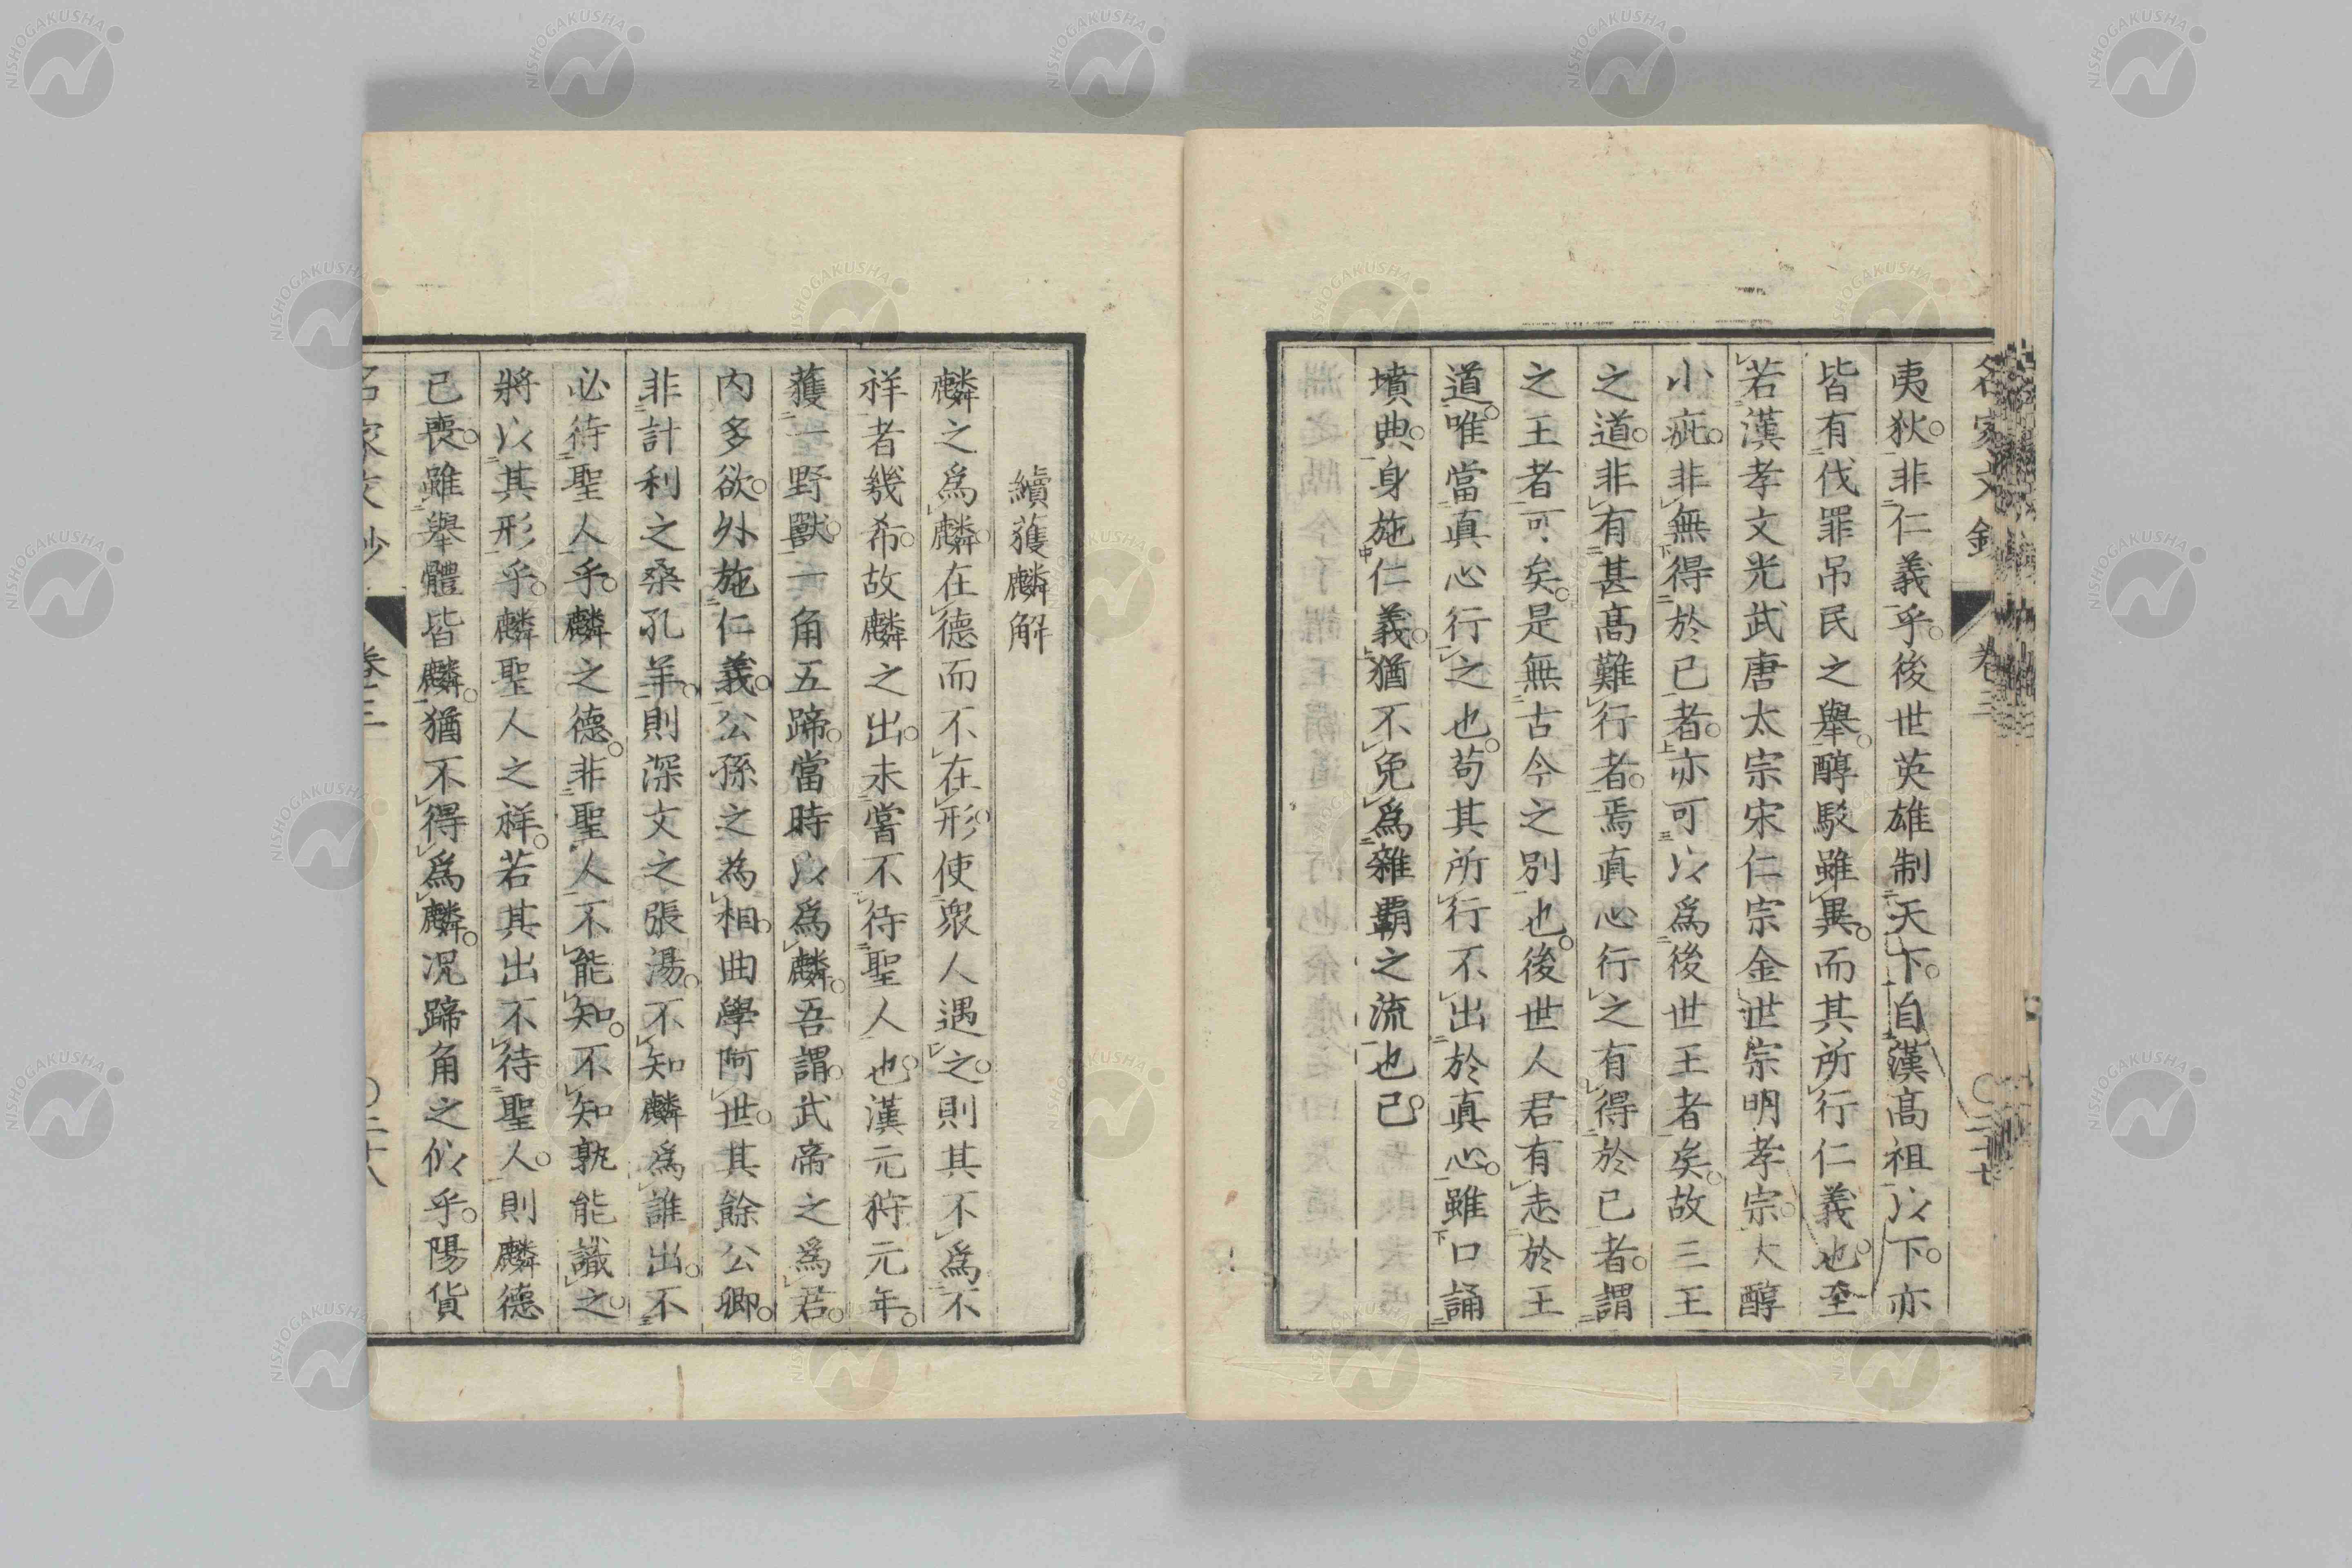 夷狄。非仁義乎。後世英雄制天下。自漢髙祖以下。亦
皆有伐罪吊民之舉。醇駁雖異。而其所行仁義也。至
若漢孝文光武唐太宗宋仁宗金世宗明孝宗。大醇
小疵。非無得於已者。亦可以爲後世王者矣。故三王
之道。非有甚髙難行者。焉真心行之有得於已者。謂
之王者可矣。是無古今之別也。後世人君有志於王
道。唯當真心行之也。苟其所行不出於真心。雖口誦
墳典。身施仁義。猶不免爲雜霸之流也已。
續獲麟解
麟之爲麟。在德而不在形。使衆人遇之。則其不爲不
祥者幾希。故麟之出。未嘗不待聖人也。漢元狩元年。
獲一野獸。一角五蹄。當時以爲麟。吾謂。武帝之爲君。
内多欲。外施仁義。公孫之為相。曲學阿世。其餘公卿。
非計利之桑孔羊。則深文之張湯。不知麟爲誰出。不
必待聖人乎。麟之德。非聖人不能知。不知孰能識之。
將以其形乎。麟聖人之祥。若其出不待聖人。則麟德
已喪。雖舉體皆麟。猶不得爲麟。况蹄角之似乎。陽貨
名家文鈔
卷三
〇二十八